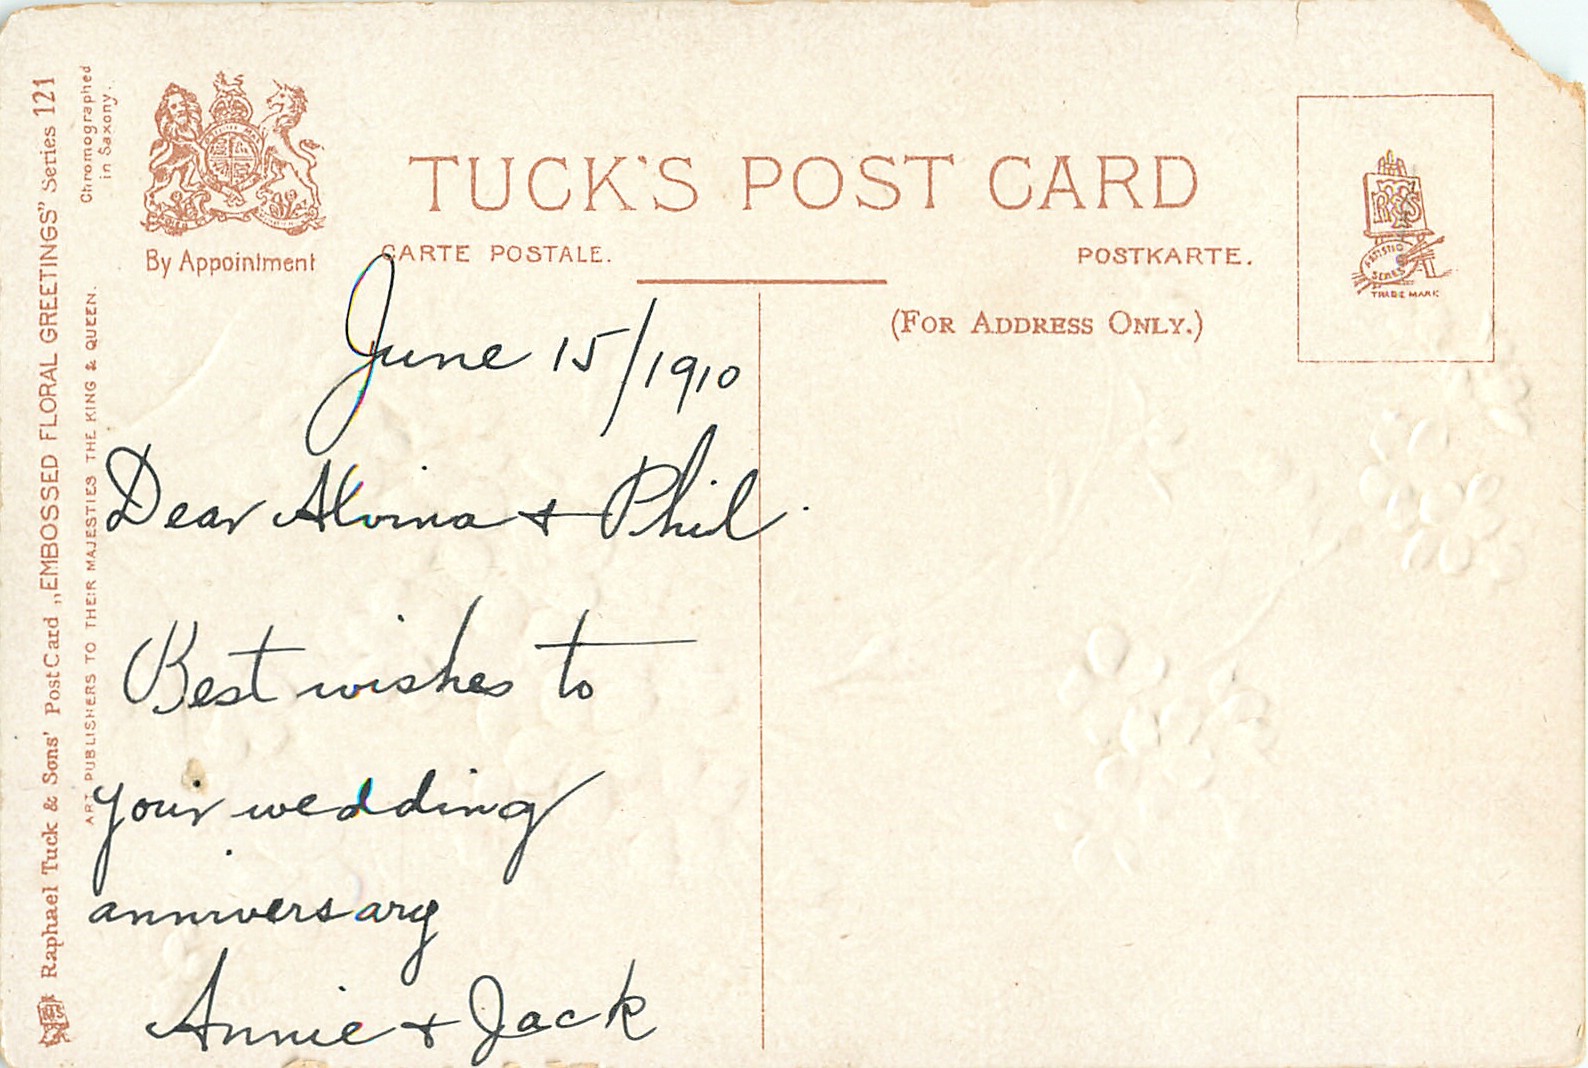 Raphael Tuck & Sons' Post Card „EMBOSSED FLORAL GREETINGS" Series 121
ART PUBLISHERS TO THEIR MAJESTIES THE KING & QUEEN.
Chromographed
in Saxony.
By Appointment
TUCK'S POST CARD
CARTE POSTALE.
POSTKARTE.
(FOR ADDRESS ONLY.)
RTS
ARTISTIC
SERIES
TRADE MARK
June 15/1910
Dear Alvina + Phil.
Best wishes to
your wedding
anniversary
Annie + Jack